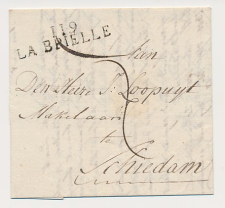 119
LA BRIELLE
Aan
Den Heer J: Loopuyt
Makelaar
te
Schiedam